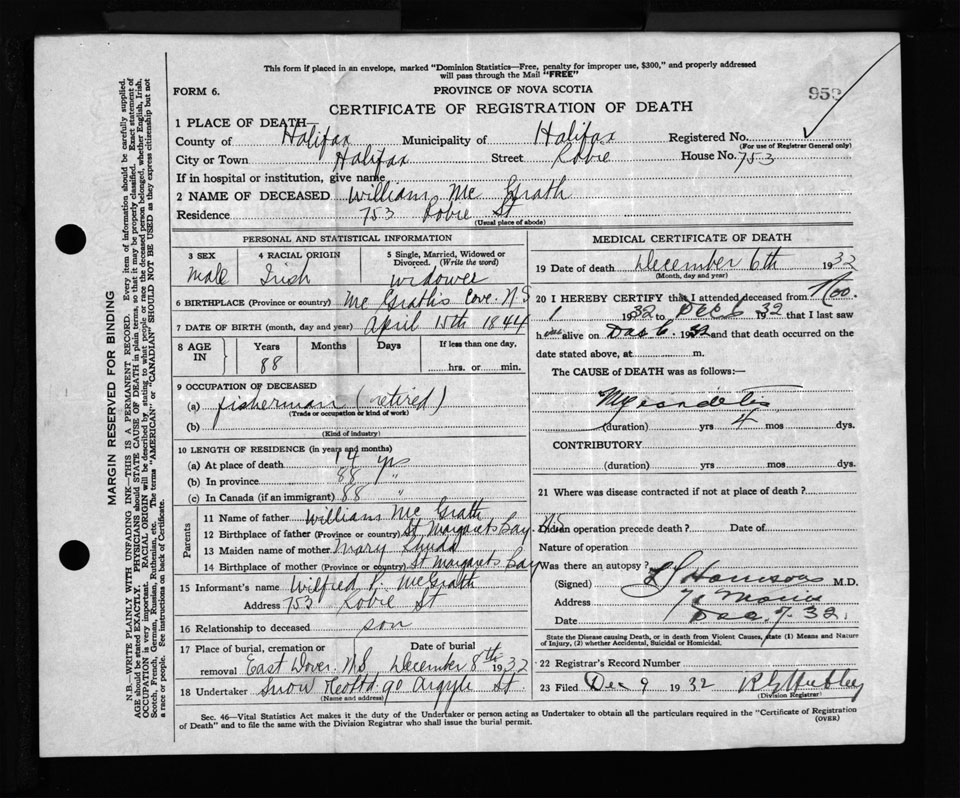 This form if placed in an envelope, marked "Dominion Statistics—Free, penalty for improper use, $300," and properly addressed
will pass through the Mail "FREE"
FORM 6. PROVINCE OF NOVA SCOTIA 953
CERTIFICATE OF REGISTRATION OF DEATH
1 PLACE OF DEATH
County of Halifax Municipality of Halifax Registered No.
(For use of Registrar General only)
City or Town Halifax Street Robie House No. 753
If in hospital or institution, give name
2 NAME OF DECEASED William Mc Grath
Residence 753 Robie St
(Usual place of abode)
PERSONAL AND STATISTICAL INFORMATION
3 SEX 4 RACIAL ORIGIN 5 Single, Married, Widowed or
Divorced. (Write the word)
Male Irish widower
6 BIRTHPLACE (Province or country) Mc Grath's Cove. N S
7 DATE OF BIRTH (month, day and year) April 15th 1844
8 AGE IN Years Months Days If less than one day,
88 hrs. or min.
9 OCCUPATION OF DECEASED
(a) fisherman (retired)
(Trade or occupation or kind of work)
(b)
(Kind of industry)
10 LENGTH OF RESIDENCE (in years and months)
(a) At place of death 14 yrs
(b) In province 88 "
(c) In Canada (if an immigrant) 88 "
Parents
11 Name of father William Mc Grath
12 Birthplace of father (Province or country) St Margarets Bay. N S
13 Maiden name of mother Mary
14 Birthplace of mother (Province or country) St Margarets Bay
15 Informant's name Wilfred P. McGrath
Address 753 Robie St
16 Relationship to deceased son
17 Place of burial, cremation or Date of burial
removal East Dover. N S December 8th 1932
18 Undertaker Snow & Co Ltd 90 Argyle St.
(Name and address)
MEDICAL CERTIFICATE OF DEATH
19 Date of death December 6th 1932
(Month, day and year)
20 I HEREBY CERTIFY that I attended deceased from Nov.
1 1932 to Dec 6 1932 that I last saw
h im alive on Dec 6. 1932 and that death occurred on the
date stated above, at m.
The CAUSE of DEATH was as follows:—
Myocarditis
(duration) yrs 4 mos dys.
CONTRIBUTORY
(duration) yrs mos dys.
21 Where was disease contracted if not at place of death?
Did an operation precede death? Date of
Nature of operation
Was there an autopsy?
(Signed) M.D.
Address
Date Dec. 7. 32.
State the Disease causing Death, or in death from Violent Causes, state (1) Means and Nature
of Injury, (2) whether Accidental, Suicidal or Homicidal.
22 Registrar's Record Number
23 Filed Dec 9 1932
(Division Registrar)
Sec. 46—Vital Statistics Act makes it the duty of the Undertaker or person acting as Undertaker to obtain all the particulars required in the "Certificate of Registration
of Death" and to file the same with the Division Registrar who shall issue the burial permit. (OVER)
MARGIN RESERVED FOR BINDING
N.B.—WRITE PLAINLY WITH UNFADING INK—THIS IS A PERMANENT RECORD. Every item of information should be carefully supplied.
AGE should be stated EXACTLY. PHYSICIANS should STATE CAUSE OF DEATH in plain terms, so that it may be properly classified. Exact statement of
OCCUPATION is very important. RACIAL ORIGIN will be described by stating to what people or race the deceased person belonged, whether English, Irish,
Scotch, French, German, Russian, Ruthenian, etc. The terms "AMERICAN" or "CANADIAN" SHOULD NOT BE USED as they express citizenship but not
a race or people. See instructions on back of Certificate.